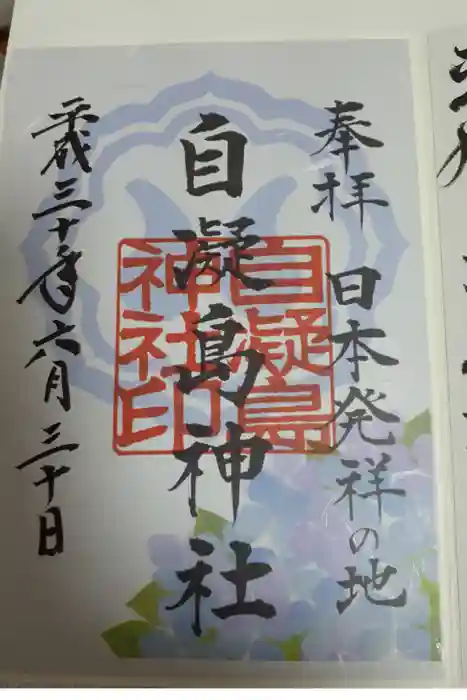 奉拝 日本発祥の地
自凝島神社
自凝島
神社印
平成三十年六月三十日